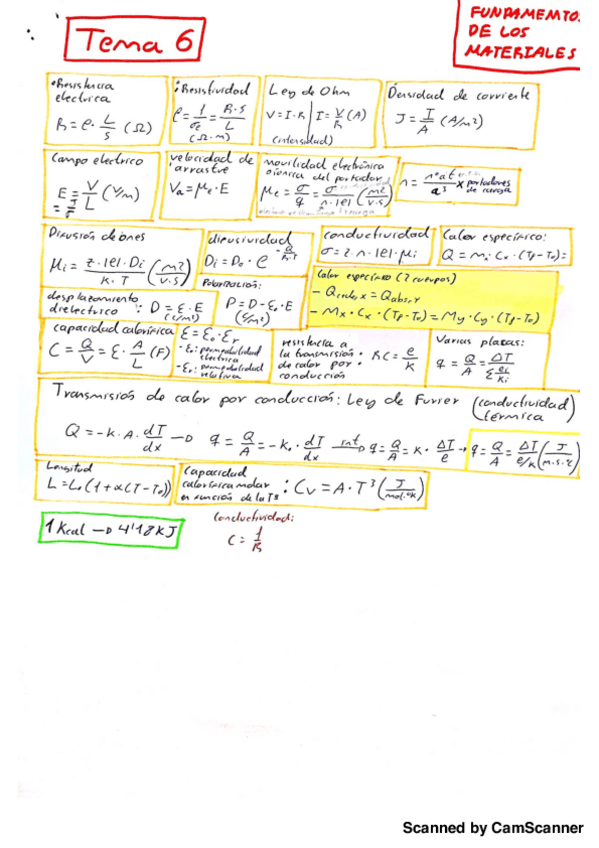 Tema 6
FUNDAMEMTO.
DE LOS
MATERIALES
• Resistencia
electrica
R = ρ · L/S (Ω)
• Resistividad
ρ = 1/σe = R·S/L
(Ω·m)
Ley de Ohm
V = I·R | I = V/R (A)
(intensidad)
Densidad de corriente
J = I/A (A/m²)
Campo electrico
E = V/L (V/m)
velocidad de
arrastre
Va = μe · E
movilidad electrónica
o ionica del portador
μe = σ/q = σ/n·|e| (m²/V·S)
n = nº at/a³ x portadores
de carga
Difusión de iones
μi = z·|e|·Di/K·T (m²/V·S)
difusividad
Di = Do · e^-Q/R·T
conductividad
σ = z·n·|e|·μi
Calor especifico:
Q = m · Cx · (Tf-To) =
desplazamiento
dielectrico : D = ε · E
(C/m²)
Polarización:
P = D - εo · E
(C/m²)
Calor especifico (2 cuerpos)
- Qcede, x = Qabs, y
- Mx · Cx · (Tf-To) = My · Cy · (Tf-To)
capacidad calorifica
C = Q/V = ε · A/L (F)
ε = εo · εr
- εo: permeabilidad
electrica
- εr: permeabilidad
relativa
resistencia a
la transmisión : RC = e/K
de calor por
conducción
Varias placas:
q = Q/A = ΔT/Σ ei/Ki
Transmisión de calor por conducción: Ley de Furrier (conductividad)
térmica
Q = -K · A · dT/dx → q = Q/A = -K · dT/dx int→ q = Q/A = K · ΔT/e → q = Q/A = ΔT/e/K (J/m·s·k)
Longitud
L = Lo (1+α(T-To))
Capacidad
calorifica molar
en función de la Tª : Cv = A · T³ (J/mol·ºK)
1 Kcal → 4'18 KJ
Conductividad:
C = 1/R
Scanned by CamScanner